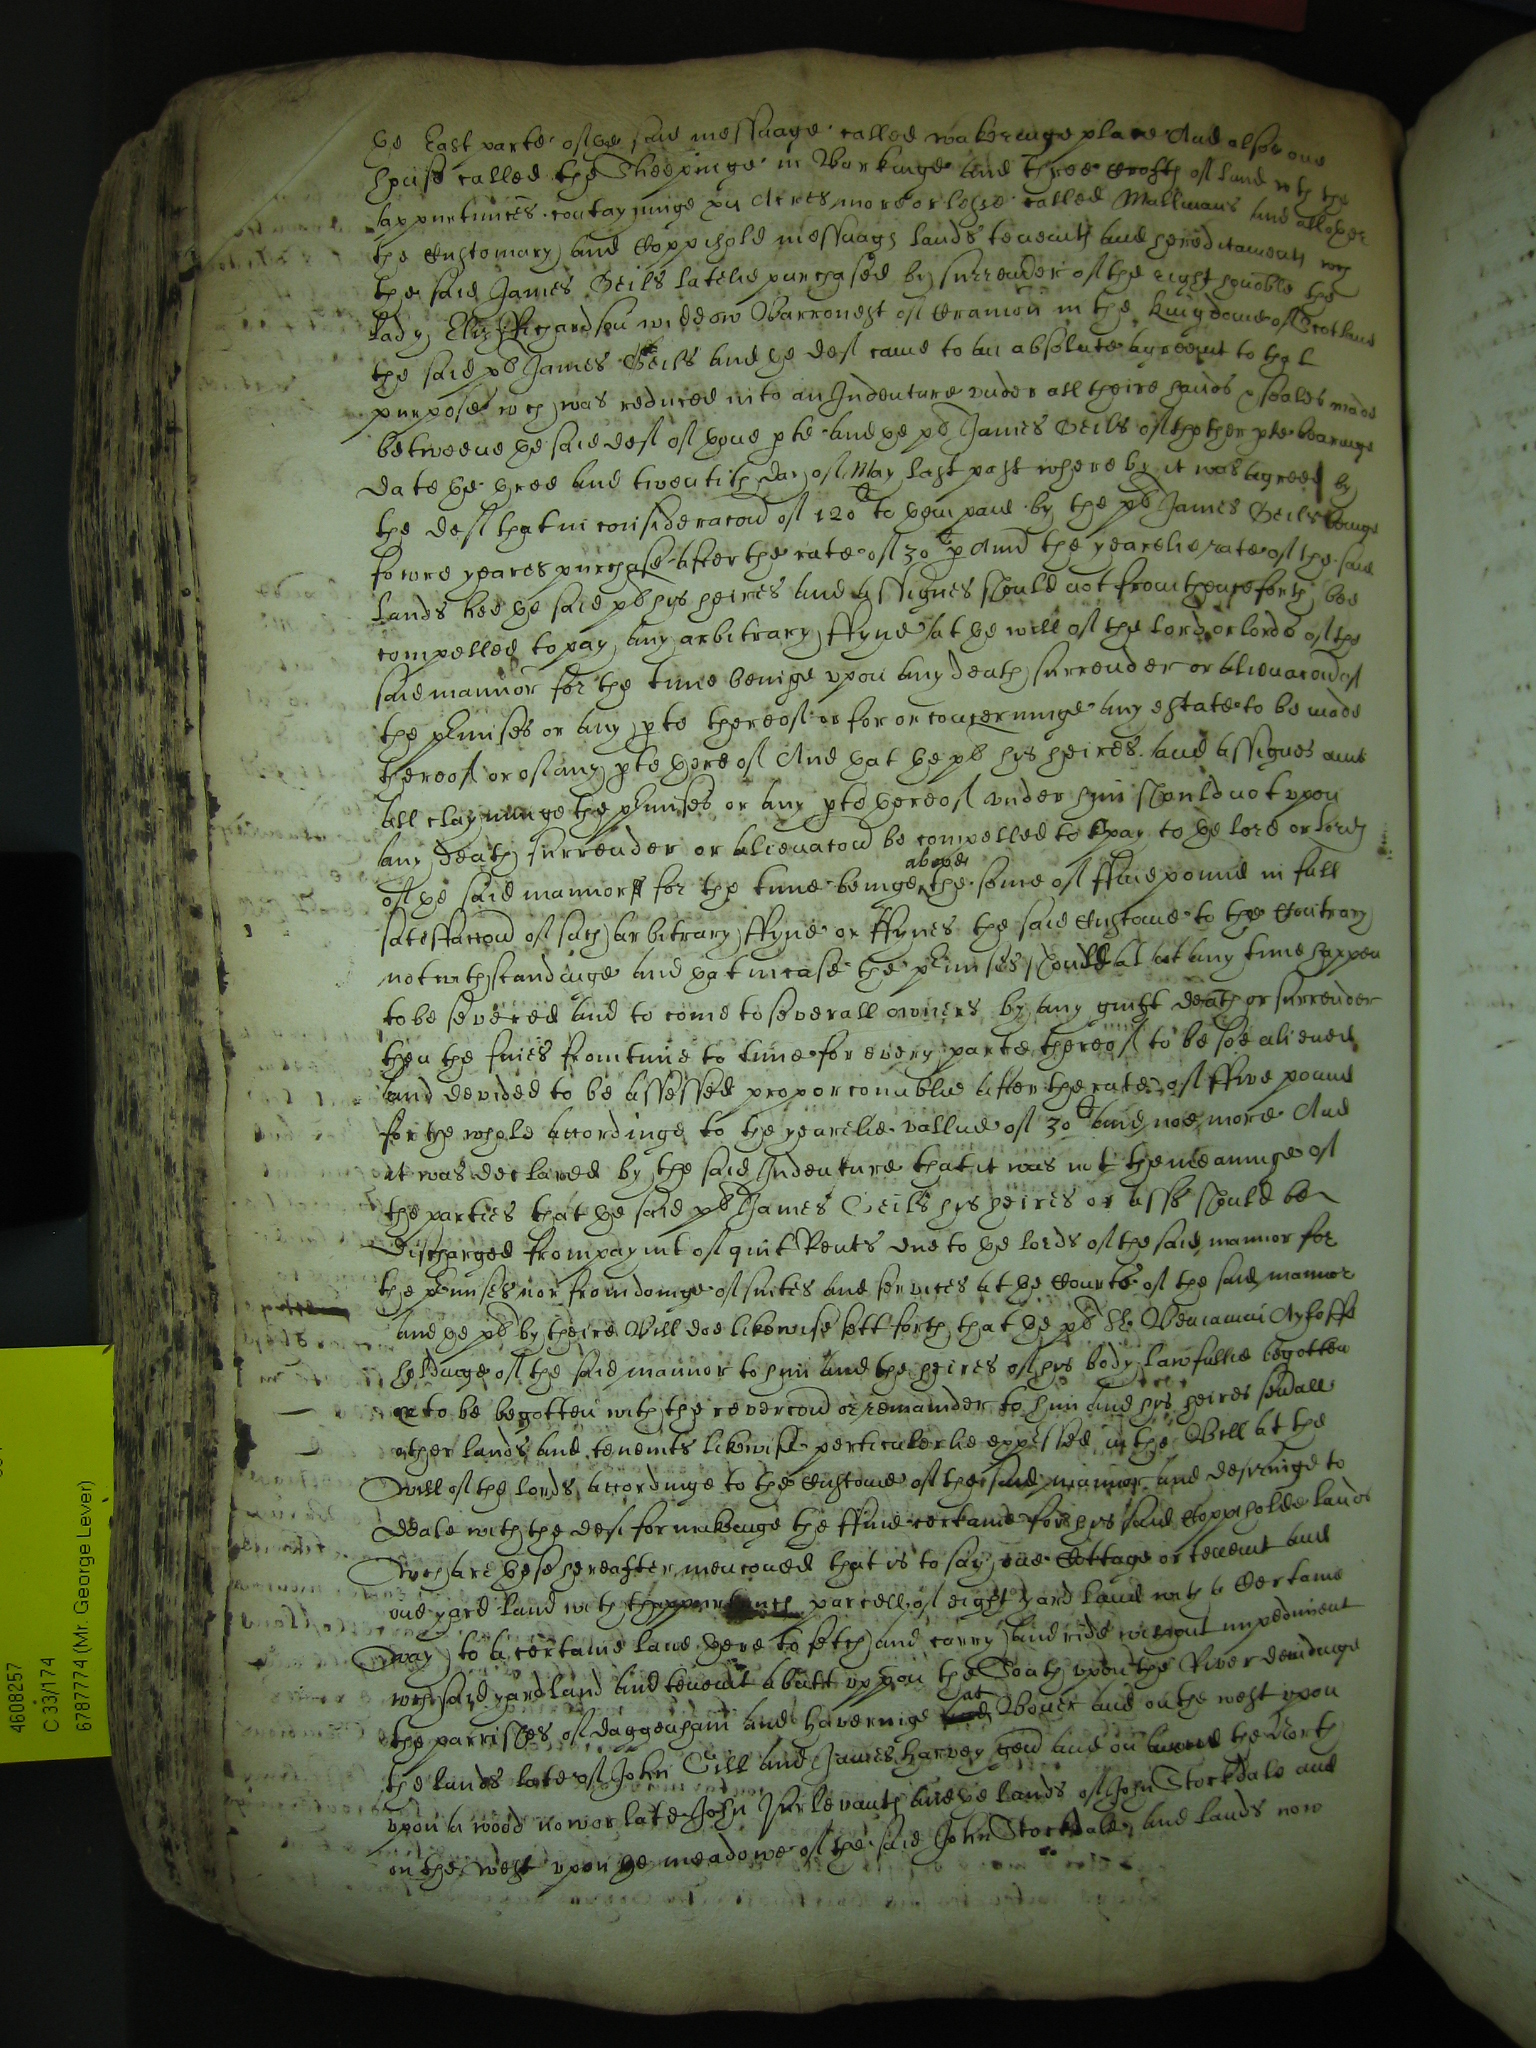 ye East parte of ye said messuage called wakeringe place And alsoe one
house called the Sheepinge in Barkinge And three Crofts of land wth the
appurtunces contayninge xii Acres more or lesse called Mallmans And all other
the Customary and Coppihold messuags lands tenemts and hereditaments wch
the said James Seils latelie purchased by surrender of the right honoble the
lady Eliz Richardson widdow Barronest of Cramon in the Kingdome of Scotland
the said pl James Seils and ye deft came to an absolute agreemt to th
purpose wch was reduced into an Indenture under all theire hands & seales made
betweene ye said deft of thone pte and ye pl James Seils of thother pte bearinge
date ye three and twentith day of May last past whereby it was agreed by
the deft that in consideracon of 120l to them paid by the pl James Seils beinge
fowre yeares purchase after the rate of 30l p Annu the yearelie rate of the said
lands hee ye said pl hys heires and assignes should not from thenceforth bee
compelled to pay any arbitrary ffyne at ye will of the lord or lords of the
said mannor for the time beinge upon any death surrender or alienacon of
the pmises or any pte thereof or for or concerninge any estate to be made
thereof or of any pte thereof And yat ye pl hys heires and assignes and
all clayminge the pmises or any pte thereof under him should not upon
any death surrender or alienacon be compelled to pay to ye lord or lords
of ye said mannor for the time beinge above the some of ffive pound in full
satisfaccon of such arbitrary ffyne or ffynes the said Custome to the Contrary
notwthstandinge and yat in case the pmises should at any time happen
to be severed and to come to severall owners by any guift death or surrender
then the fines from time to time for every parte thereof to be soe aliened
and devided to be assessed proporconablie after the rate of ffive pound
for the whole accordinge to the yearelie vallue of 30l and noe more And
it was declared by the said Indenture that it was not the meaninge of
the parties that ye said pl James Seils hys heires or asss should be
discharged from paymt of quit Rents due to ye lords of the said mannor for
the pmises nor from doinge of suites and services at ye Courts of the said mannor
and ye pl by theire Bill doe likewise sett forth that ye pl Sr Beniamin Ayloffe
holdinge of the said mannor to him and the heires of hys body lawfullie begotten
or to be begotten with the revercon or remainder to him and hys heires sevrall
other lands and tenemts likewise perticulerlie expssed in the Bill at the
will of the lords accordinge to the Custome of the said mannor and desiringe to
deale with the deft for makeinge the ffine certaine for hys said Coppiholde lands
wch are these hereafter menconed that is to say one Cottage or tenemt and
one yard land with thappurtuncs parcell of eight yard land with a Certaine
way to a certaine lane there to fetch and carry and ride without impediment
wch said yardland and tenemt abutt uppon the South upon the River devidinge
the parrishes of Daggenham and Haveringe at Bower and on the west upon
the lands late of John Gill and James Harvey gen and on the North
upon a wood now or late John and ye lands of John Stockdale and
on the west upon ye meadowe of the said John Stockdale and lands now
4608257
C 33/174
6787774 (Mr. George Lever)